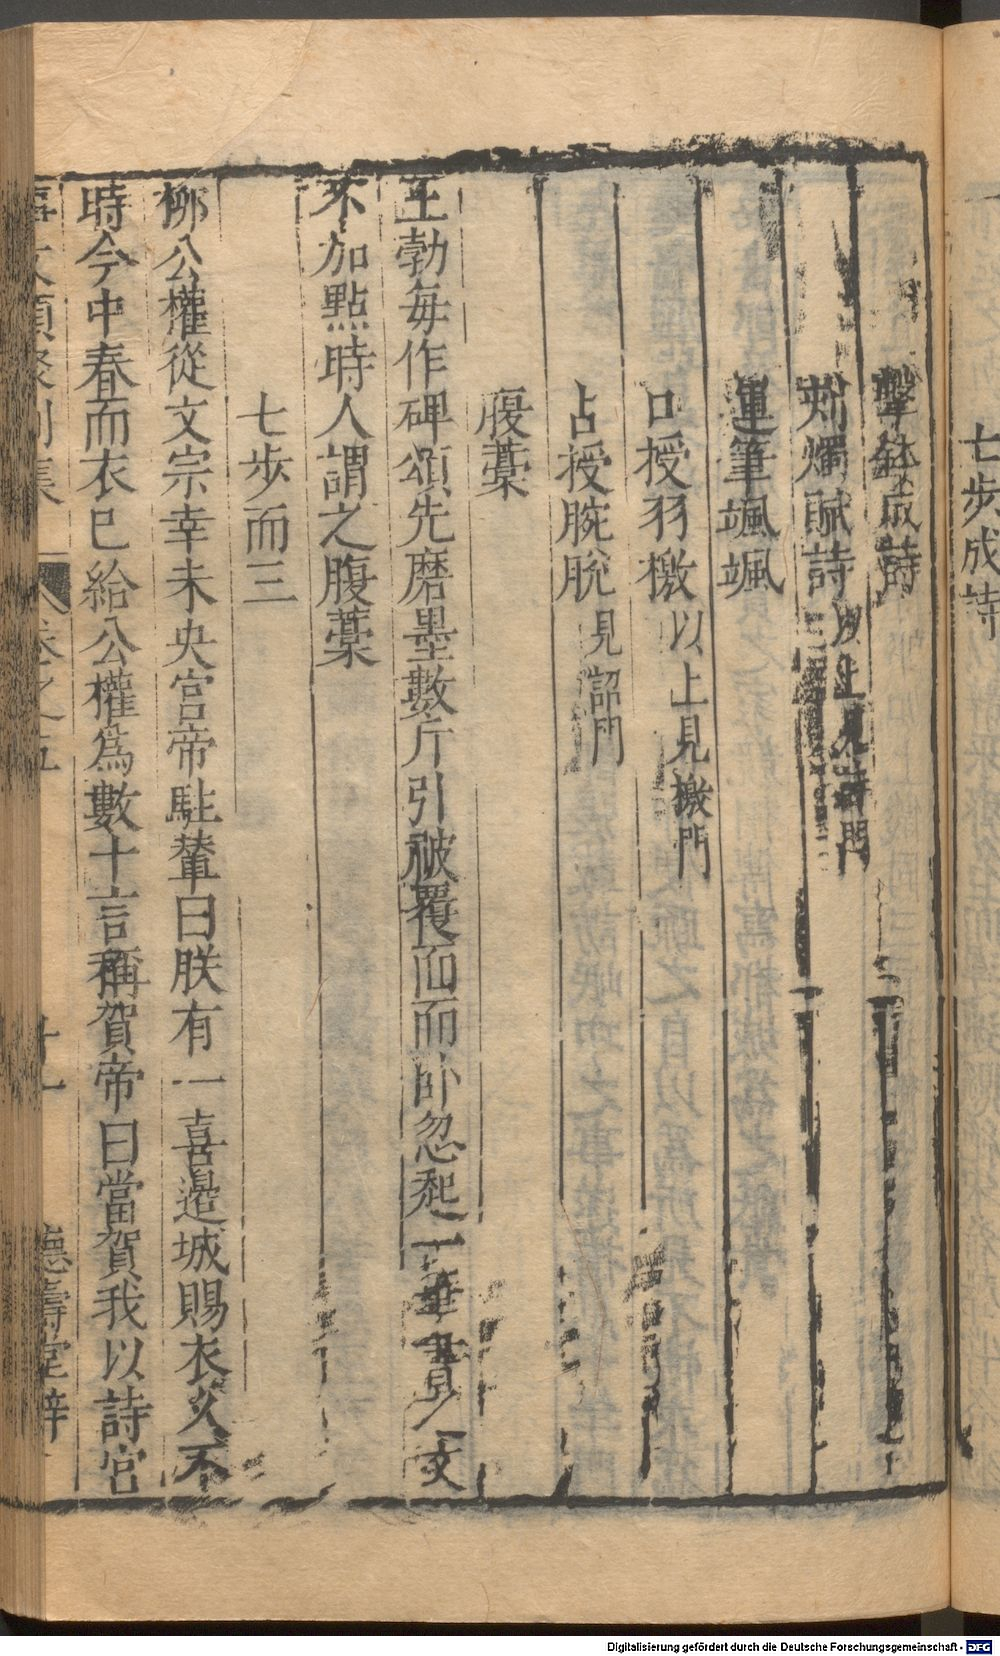 七步成詩
擊鉢成詩
刻燭賦詩 以上見詩門
運筆颯颯
口授羽檄 以上見檄門
占授腕脫 見詔門
腹藁
王勃每作碑頌先磨墨數斤引被覆面而卧忽起一筆書之文
不加點時人謂之腹藁
七步而三
柳公權從文宗幸未央宮帝駐輦曰朕有一喜邉城賜衣久不
時今中春而衣已給公權爲數十言稱賀帝曰當賀我以詩宮
事文類聚別集 卷之五 十一 德壽堂梓
Digitalisierung gefördert durch die Deutsche Forschungsgemeinschaft - DFG